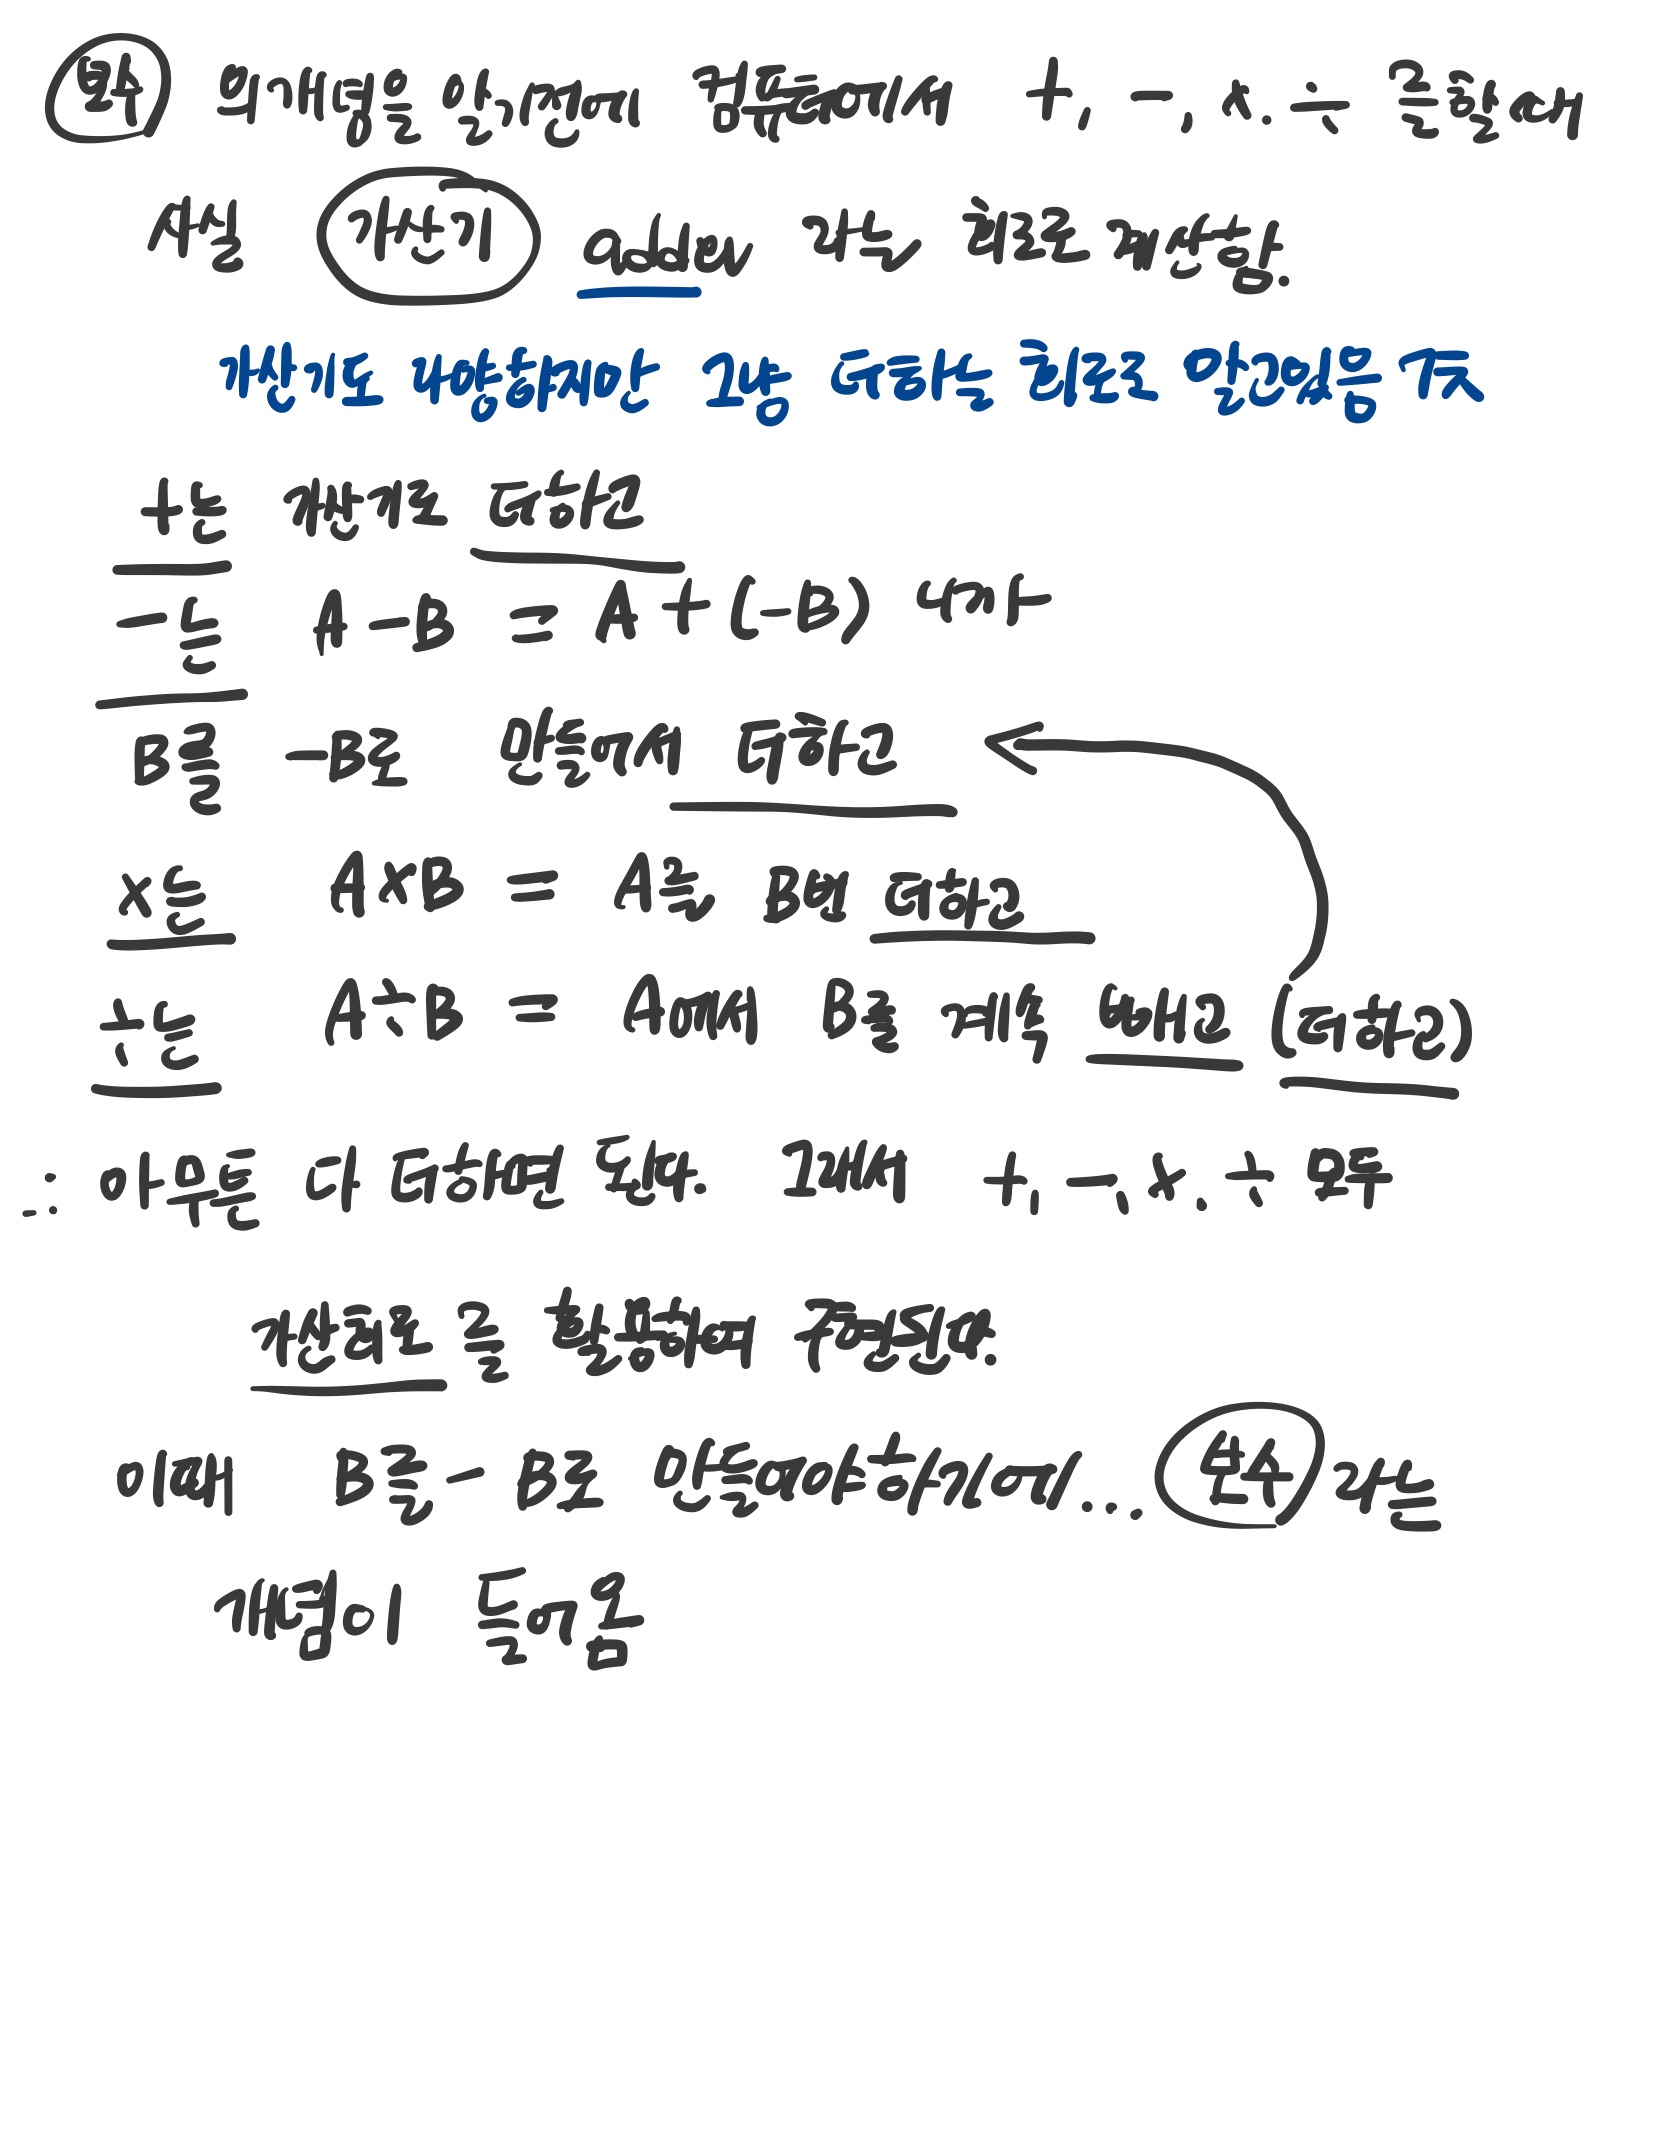 보수 의개념을 알기전에 컴퓨터에서 +, -, x. ÷ 를할때
사실 가산기 adder 라는 회로로 계산함.
가산기도 다양하지만 그냥 더하는 회로로 알고있음 ㄱㅊ
+는 가산기로 더하고
-는 A-B = A+(-B) 니까
B를 -B로 만들어서 더하고
x는 AxB = A를 B번 더하고
÷는 A÷B = A에서 B를 계속 빼고 (더하고)
∴ 아무튼 다 더하면 된다. 그래서 +, -, x. ÷ 모두
가산회로 를 활용하여 구현된다.
이때 B를 -B로 만들어야하기에... 보수 라는
개념이 들어옴